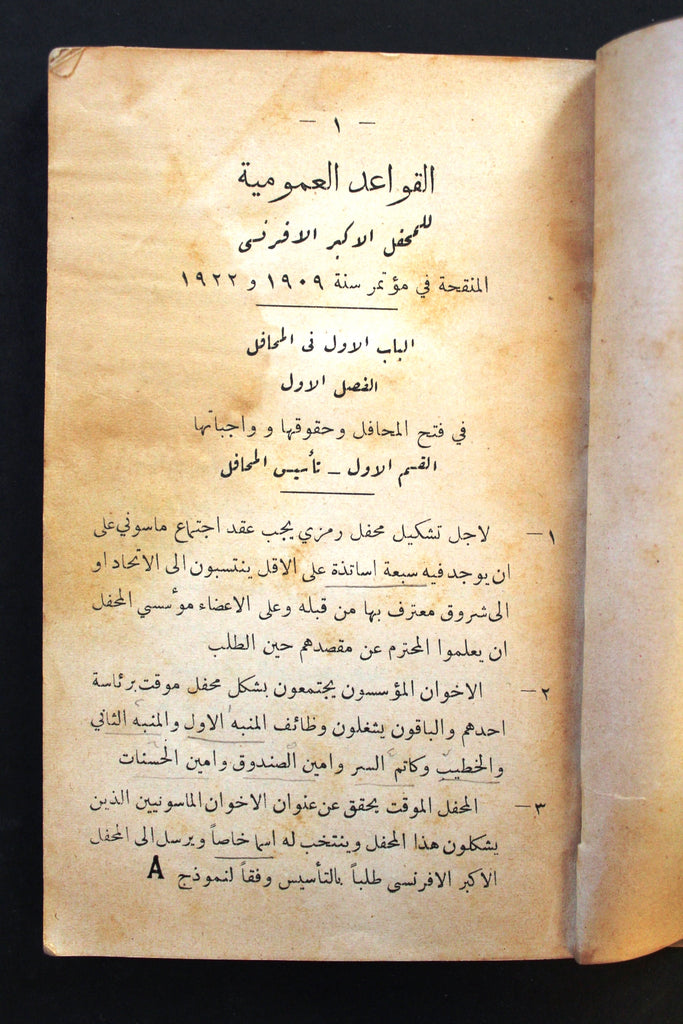 — ١ —
القواعد العمومية
للمحفل الاكبر الافرنسى
المنقحة في مؤتمر سنة ١٩٠٩ و ١٩٢٢
الباب الاول فى المحافل
الفصل الاول
في فتح المحافل وحقوقها و واجباتها
القسم الاول ـ تأسيس المحافل
١ — لاجل تشكيل محفل رمزي يجب عقد اجتماع ماسوني على
ان يوجد فيه سبعة اساتذة على الاقل ينتسبون الى الاتحاد او
الى شروق معترف بها من قبله وعلى الاعضاء مؤسسي المحفل
ان يعلموا المحترم عن مقصدهم حين الطلب
٢ — الاخوان المؤسسون يجتمعون بشكل محفل موقت برئاسة
احدهم والباقون يشغلون وظائف المنبه الاول والمنبه الثاني
والخطيب وكاتم السر وامين الصندوق وامين الحسنات
٣ — المحفل الموقت يحقق عن عنوان الاخوان الماسونيين الذين
يشكلون هذا المحفل وينتخب له اسما خاصاً ويرسل الى المحفل
الاكبر الافرنسى طلباً بالتأسيس وفقاً لنموذج A